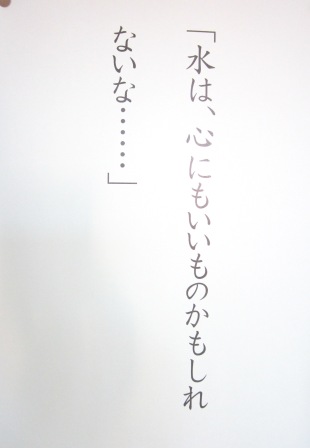 「水は、心にもいいものかもしれ
ないな……」